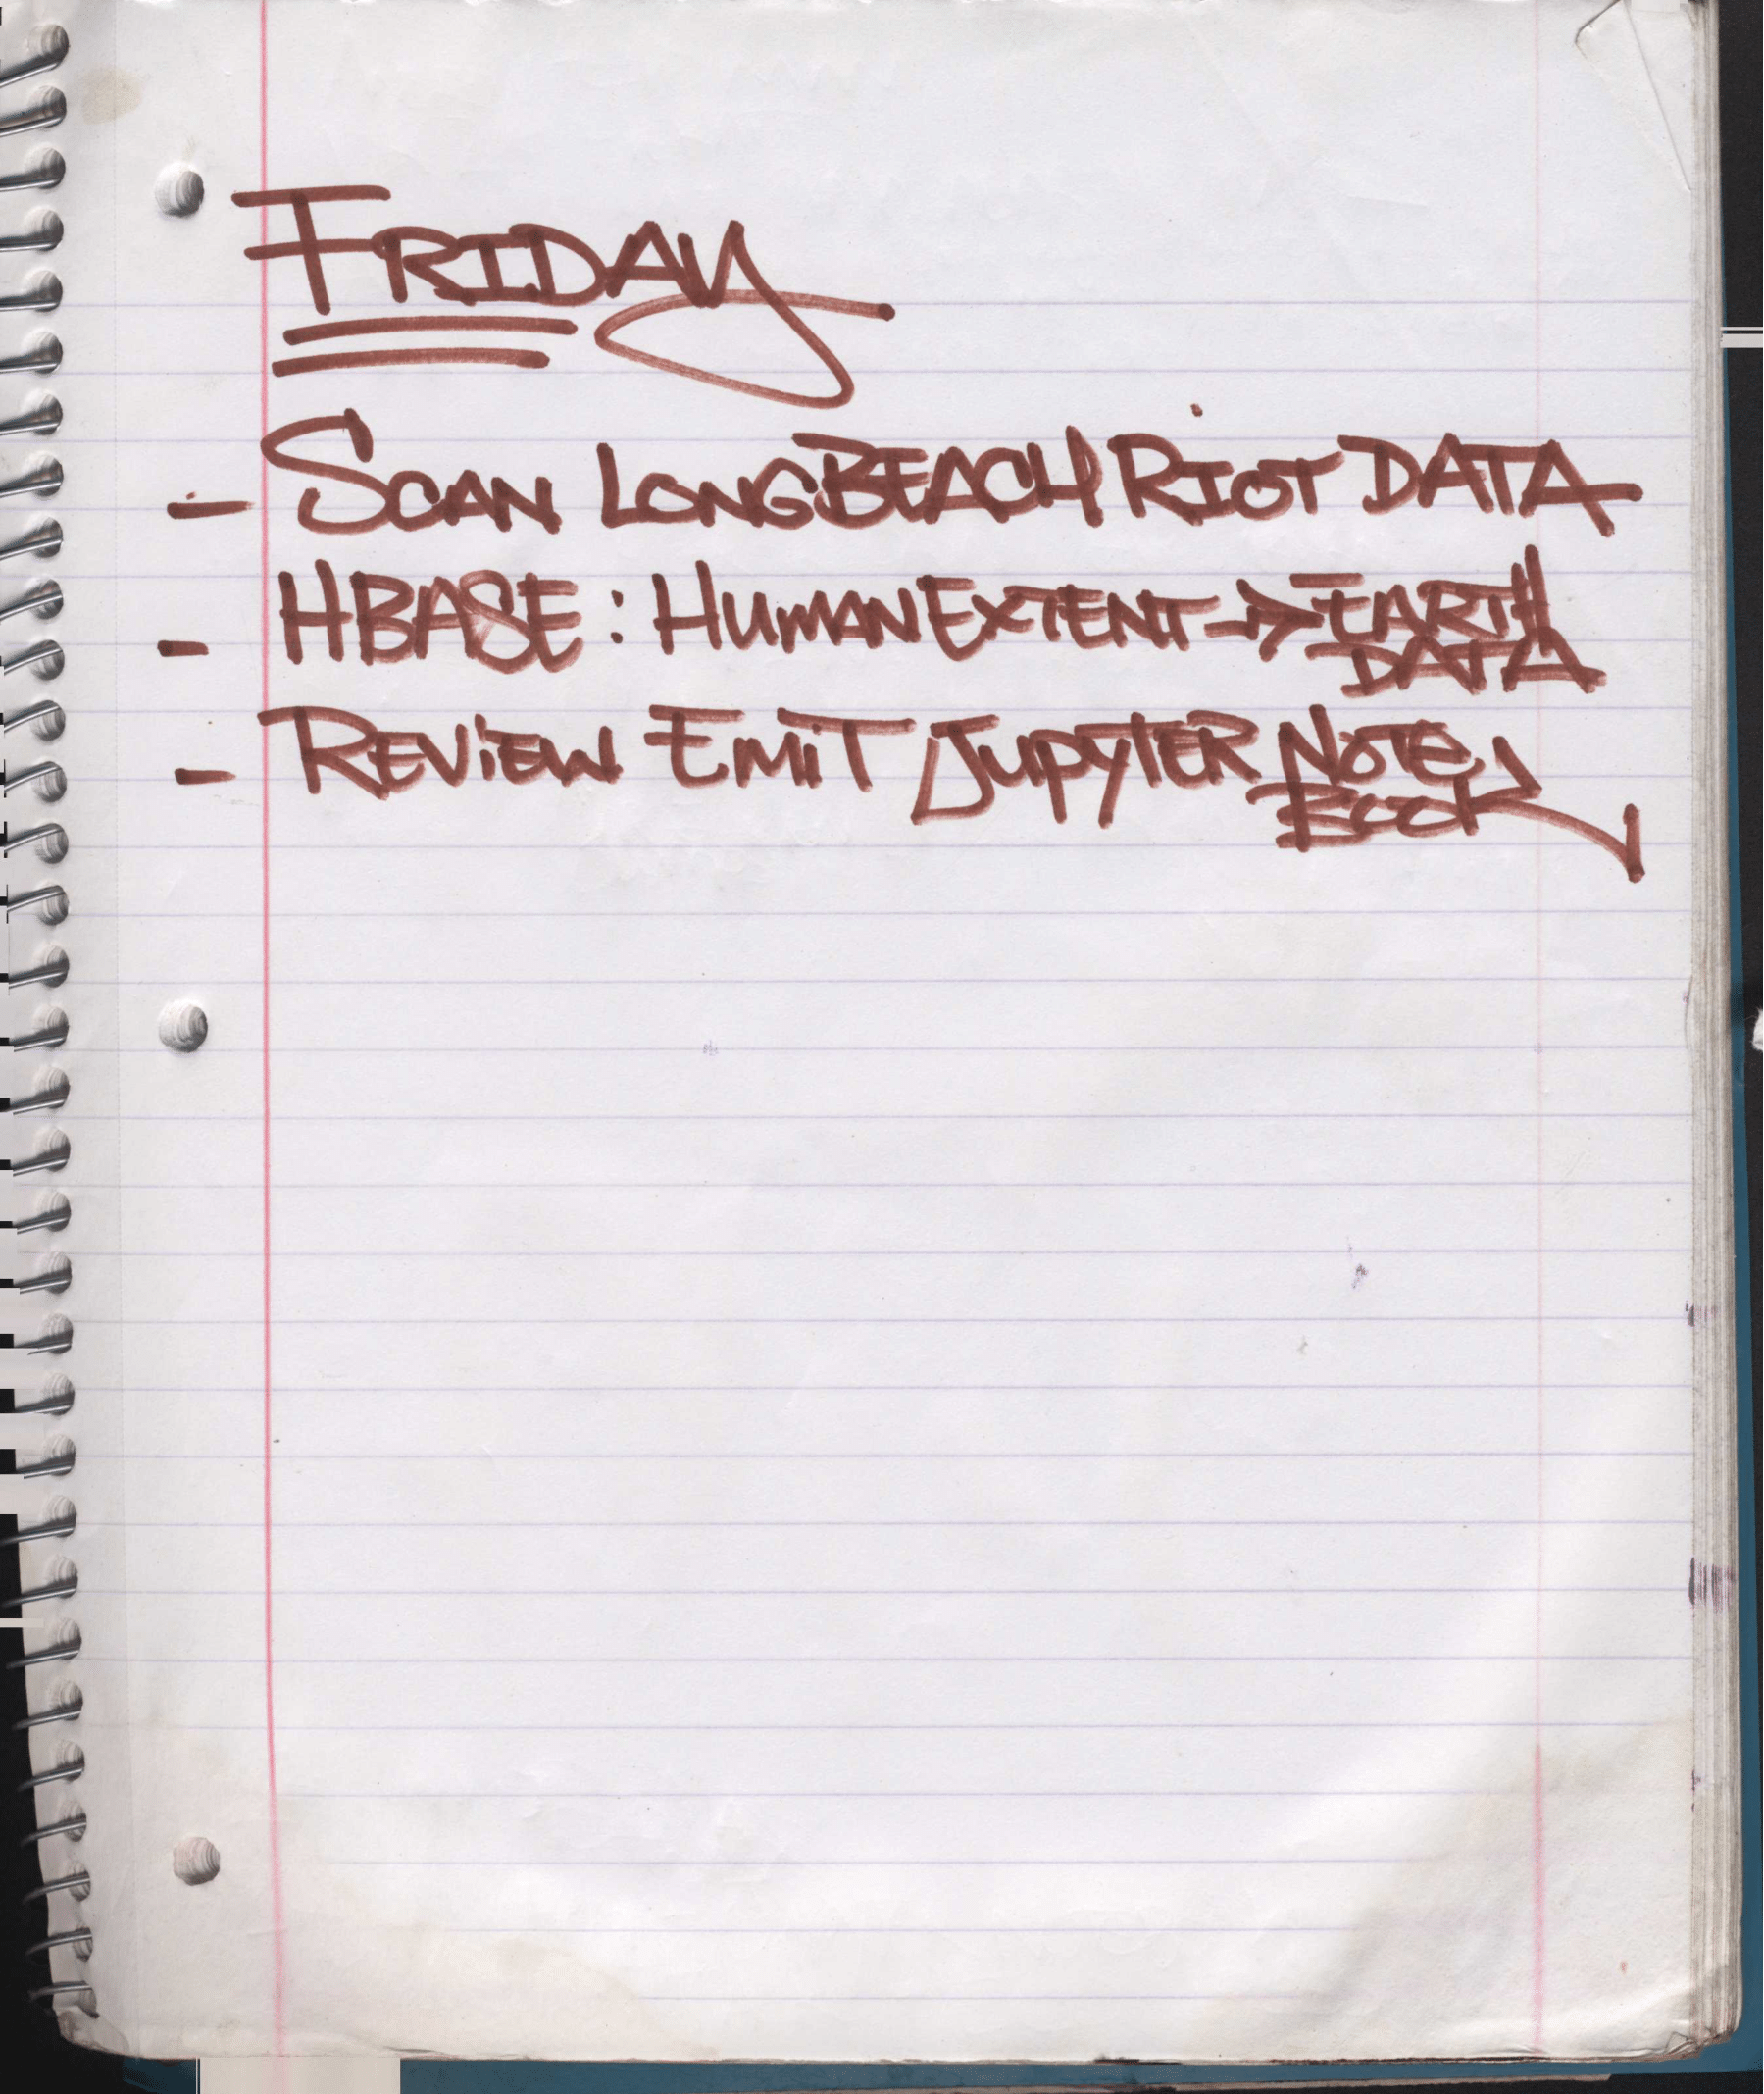 FRIDAY
- SCAN LONGBEACH RIOT DATA
- HBASE: HUMAN EXTENT -> EARTH
DATA
- REVIEW EMIT JUPYTER NOTE
BOOK